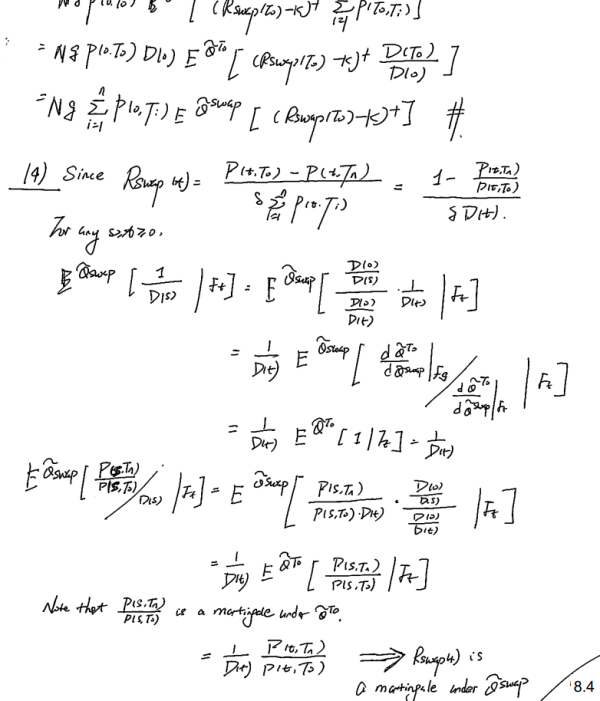 [ (Rswap(T₀)-K)⁺ Σ_{i=1} P(T₀,Tᵢ) ]
= Nδ P(0,T₀) D(0) E^{Q̃^{T₀}} [ (Rswap(T₀)-K)⁺ D(T₀)/D(0) ]
= Nδ Σ_{i=1}^{n} P(0,Tᵢ) E^{Q̃swap} [ (Rswap(T₀)-K)⁺ ] #
(4) Since Rswap(t) = (P(t,T₀) - P(t,Tₙ)) / (δ Σ_{i=1}^{n} P(t,Tᵢ)) = (1 - P(t,Tₙ)/P(t,T₀)) / (δ D(t)).
For any s≥t≥0,
E^{Q̃swap} [ 1/D(s) | Ft ] = E^{Q̃swap} [ (D(0)/D(s)) / (D(0)/D(t)) · 1/D(t) | Ft ]
= 1/D(t) E^{Q̃swap} [ dQ̃^{T₀}/dQ̃swap |Fs / dQ̃^{T₀}/dQ̃swap |Ft | Ft ]
= 1/D(t) E^{Q̃^{T₀}} [ 1 | Ft ] = 1/D(t)
E^{Q̃swap} [ P(s,Tₙ)/P(s,T₀) / D(s) | Ft ] = E^{Q̃swap} [ P(s,Tₙ)/(P(s,T₀)·D(t)) · (D(0)/D(s)) / (D(0)/D(t)) | Ft ]
= 1/D(t) E^{Q̃^{T₀}} [ P(s,Tₙ)/P(s,T₀) | Ft ]
Note that P(s,Tₙ)/P(s,T₀) is a martingale under Q̃^{T₀}.
= 1/D(t) P(t,Tₙ)/P(t,T₀) ⟹ Rswap(t) is
a martingale under Q̃swap
8.4